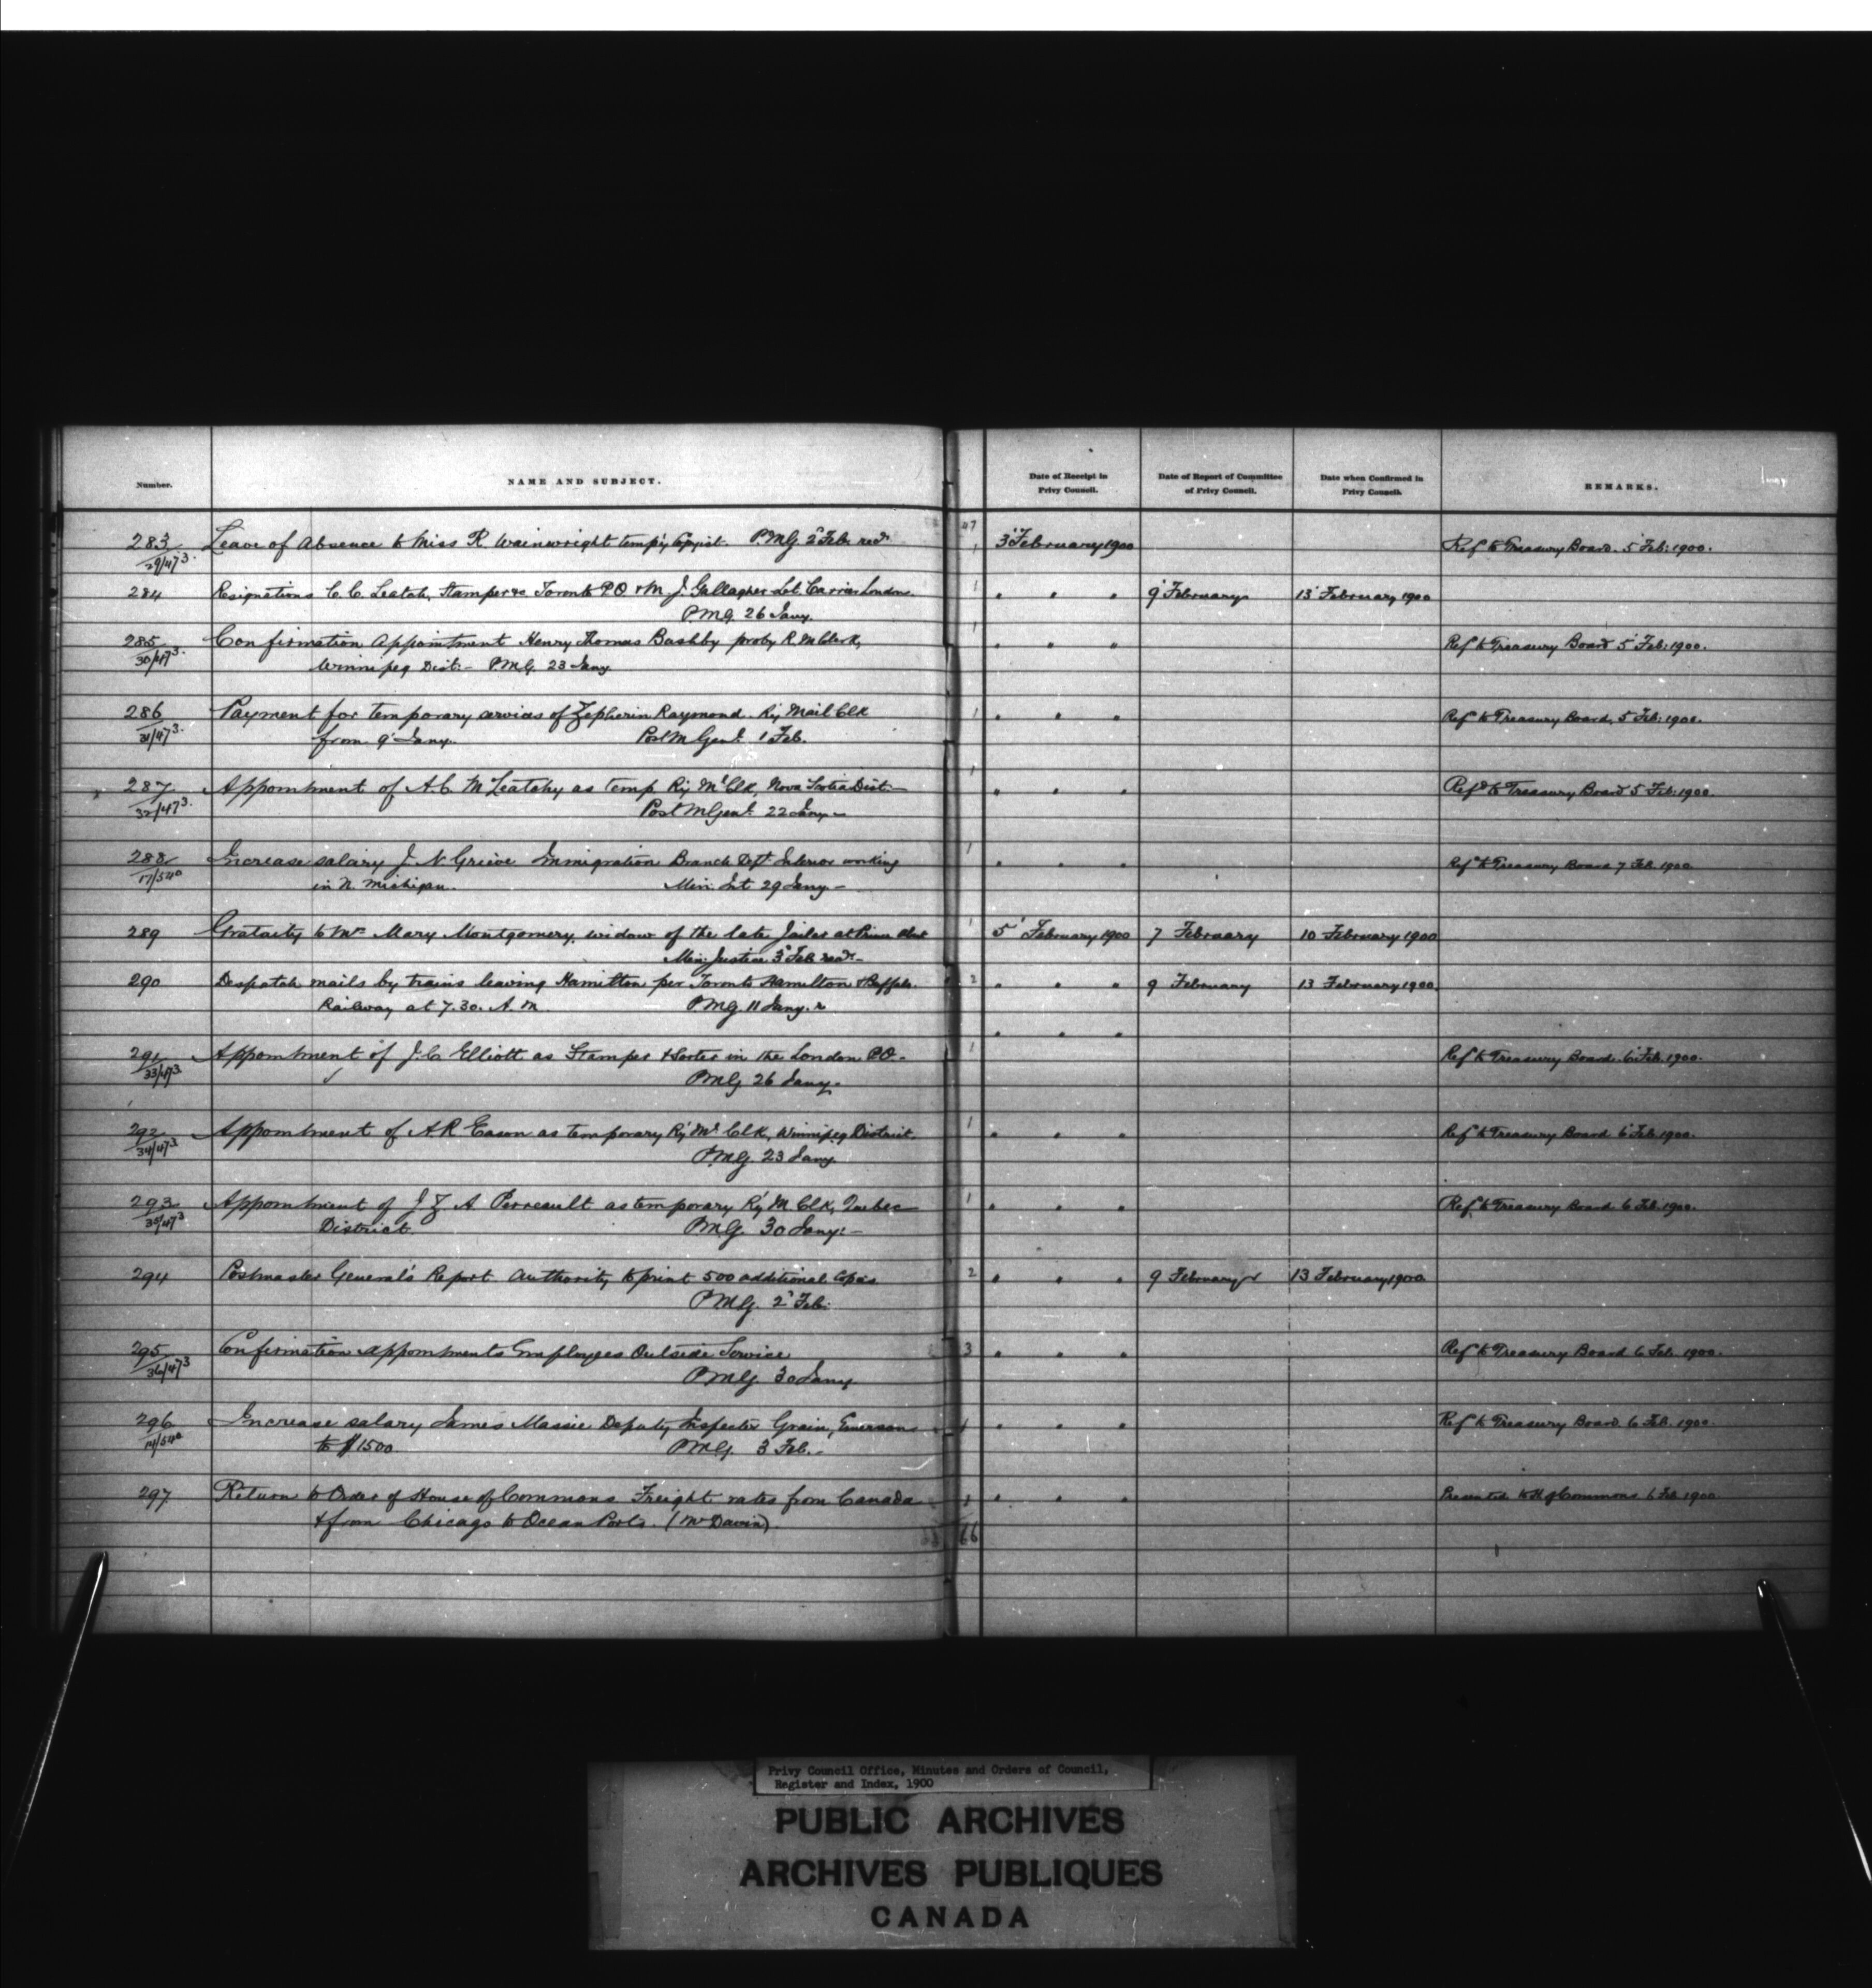 Number. NAME AND SUBJECT. Date of Receipt in Privy Council. Date of Report of Committee of Privy Council. Date when Confirmed in Privy Council. REMARKS.
47
283 Leave of Absence to Miss R. Wainwright temp'y Copyist. P.M.G. 2' Feb. recd 1 3' February 1900 Ref to Treasury Board. 5' Feb: 1900.
29/473.
284 Resignations C. C. Leatch, Stamper &c Toronto P.O & M. J. Gallagher Let. Carrier London. 1 " " " 9' February 13' February 1900
P.M.G. 26 Jany.
285 Confirmation Appointment Henry Thomas Bashby proby R. M Clerk, 1 " " " Ref to Treasury Board 5' Feb: 1900.
30/473. Winnipeg Dist:- P.M.G. 23 Jany
286 Payment for temporary services of Zepherin Raymond. Ry Mail Clk 1 " " " Ref to Treasury Board, 5 Feb: 1900.
31/473. from 9' Jany. Post M Genl. 1 Feb.
287 Appointment of A. C. McLeatchy as temp Ry Ml Clk, Nova Scotia Dist:- 1 " " " Refd to Treasury Board 5 Feb: 1900.
32/473. Post M Genl. 22 Jany-
288 Increase salary J. N. Grieve Immigration Branch Dept. Interior working 1 " " " Refd to Treasury Board 7 Feb. 1900
17/540 in N. Michigan. Min. Int 29 Jany-
289 Gratuity to Mrs Mary Montgomery, widow of the late Jailer at Prince Albert 1 5' February 1900 7 February 10 February 1900
Min: Justice 3' Feb recd-
290 Despatch mails by trains leaving Hamilton per Toronto Hamilton & Buffalo. 2 " " " 9 February 13 February 1900.
Railway at 7.30. A. M. P.M.G. 11 Jany.
" " "
291 Appointment of J. C. Elliott as Stamper & Sorter in the London P.O- 1 Ref to Treasury Board. 6' Feb. 1900.
33/473 P.M.G. 26 Jany-
292 Appointment of A. R. Eason as temporary Ry Ml Clk, Winnipeg District. 1 " " " Ref to Treasury Board 6' Feb. 1900.
34/473 P.M.G. 23 Jany.
293 Appointment of J. Z. A Perreault as temporary Ry M. Clk, Quebec 1 " " " Ref to Treasury Board 6 Feb. 1900.
35/473 District. P.M.G. 30 Jany:-
294 Postmaster General's Report Authority to print 500 additional Copies 2 " " " 9 February 13 February 1900.
P.M.G. 2' Feb:
295 Confirmation Appointments Employees Outside Service 3 " " " Ref to Treasury Board 6 Feb. 1900.
36/473 P.M.G. 30 Jany
296 Increase salary James Massie Deputy Inspector Grain, Emerson 1 " " " Ref to Treasury Board 6 Feb. 1900.
14/540 to $1500 P.M.G. 3 Feb.-
297 Return to Order of House of Commons Freight rates from Canada 1 " " " Presented to H of Commons 6 Feb 1900.
& from Chicago to Ocean Ports. (Mr Davin).
66
Privy Council Office, Minutes and Orders of Council,
Register and Index, 1900
PUBLIC ARCHIVES
ARCHIVES PUBLIQUES
CANADA